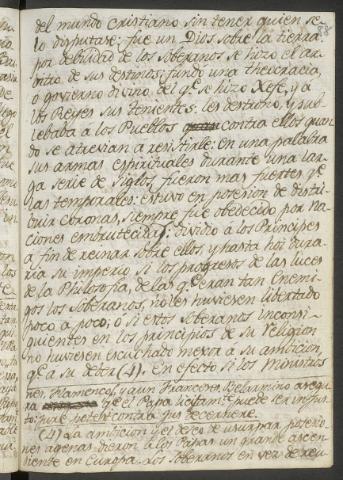 del mundo Cristiano sin tener quien se
lo disputase: fue un Dios sobre la tierra:
por debilidad de los Soberanos se hizo el ar
bitro de sus destinos: fundó una theocracia,
o govierno divino del qe. se hizo Xefe, y a
los Reyes sus Tenientes: les destruio, y sub
lebaba à los Pueblos contra ellos quan
do se atrevian a resistirle: En una palabra
sus armas espirituales durante una lar
ga serie de siglos, fueron mas fuertes qe.
las temporales: estuvo en posesion de distri
buir coronas, siempre fue obedecido por na
ciones embrutecidas: dividió a los Principes
a fin de reinar sobre ellos, y hasta hoi dura
ria su imperio si los progresos de las luces
de la Philosofia, de las qe. eran tan Enemi
gos los Soberanos, no les huviesen libertado
poco a poco, o si estos Soberanos inconsi
guientes en los principios de su religion
no huviesen escuchado mexor a su ambicion
qe. a su deber (4). En efecto si los Ministros
nes, Flamencos, y aun Franceses. Belarmino asegu
ra qe. el Papa licitamte. puede ser injus
to: jure potest contra jus decernere.
(4) La ambicion y el deseo de usurpar posesio
nes agenas dieron a los Papas un grande ascen
diente en Europa. Los Soberanos en vez de reu